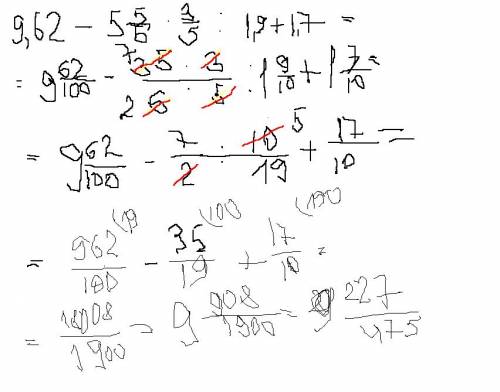 9,62 − 5 5/6 · 3/5 : 1,9 + 1,7 =
= 9 62/100 − 7 35 · 3 / 2 6 · 5 : 1 9/10 + 1 7/10 =
= 9 62/100 − 7 · 10 5 / 2 · 19 + 17/10 =
= 962/100 (19 − 35/19 (100 + 17/10 (190 =
= 18008/1900 = 9 908/1900 = 9 227/475